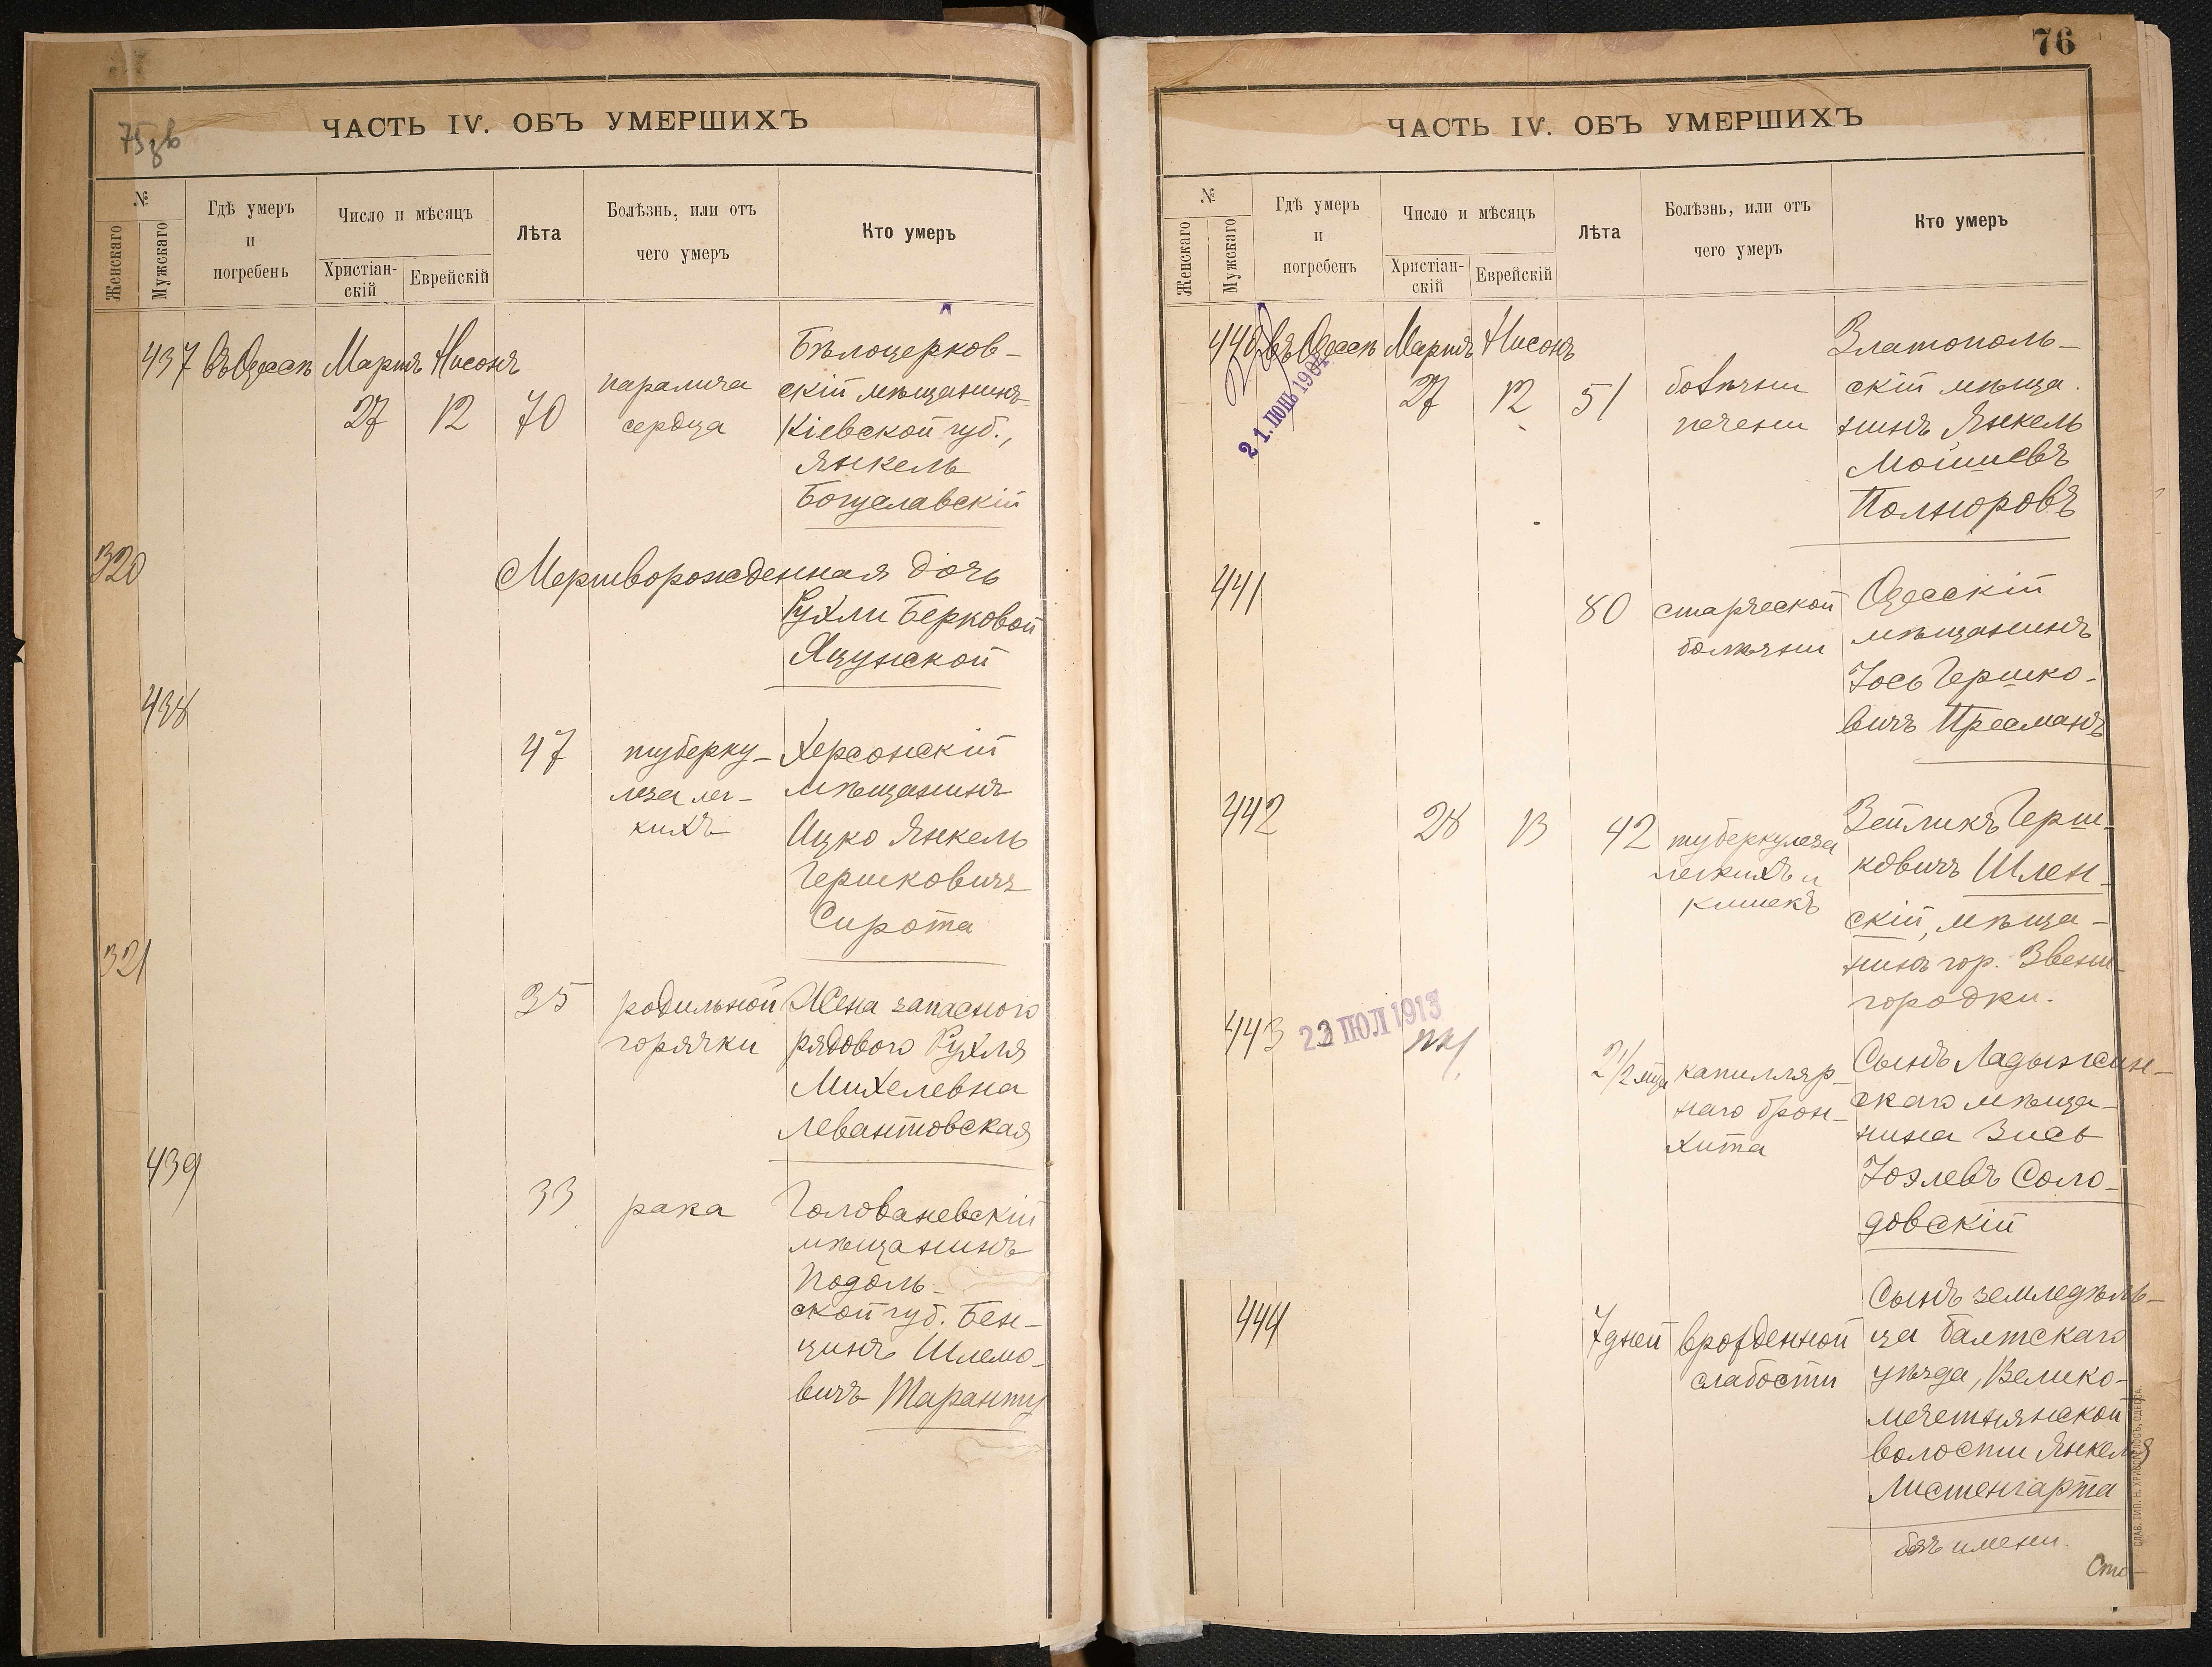 75 зв
ЧАСТЬ IV. ОБЪ УМЕРШИХЪ
№
Женскаго
Мужскаго
Гдѣ умеръ
и
погребенъ
Число и мѣсяцъ
Христіан-
скій
Еврейскій
Лѣта
Болѣзнь, или отъ
чего умеръ
Кто умеръ
437 въ Одессѣ Мартъ Нисонъ
27 12 70
паралича
сердца
Бѣлоцерков-
скій мѣщанинъ
Кіевской губ.,
Янкель
Богуславскій
320
Мертворожденная дочь
Рухли Берковой
Яцунской
438
47
туберку-
леза лег-
кихъ
Херсонскій
мѣщанинъ
Ицко Янкель
Гершковичъ
Сирота
321
35
родильной
горячки
Жена запасного
рядового Рухля
Михелевна
Левантовская
439
33
рака
Голованевскій
мѣщанинъ
Подоль-
ской губ. Бен-
ціонъ Шлемо-
вичъ Таранту
76
ЧАСТЬ IV. ОБЪ УМЕРШИХЪ
№
Женскаго
Мужскаго
Гдѣ умеръ
и
погребенъ
Число и мѣсяцъ
Христіан-
скій
Еврейскій
Лѣта
Болѣзнь, или отъ
чего умеръ
Кто умеръ
440 въ Одессѣ Мартъ Нисонъ
21. ІЮНЬ 1904
27 12 51
болѣзни
печени
Златополь-
скій мѣща-
нинъ Янкель
Мошиевъ
Полноровъ
441
80
старческой
болѣзни
Одесскій
мѣщанинъ
Іось Гершко-
вичъ Пресманъ
442
28 13 42
туберкулеза
легкихъ и
кишекъ
Зейликъ Герш-
ковичъ Шлен-
скій, мѣща-
нинъ гор. Звени-
городки.
443
22 ІЮЛ 1913
2 1/2 мца
капилляр-
наго брон-
хита
Сынъ Ладыжин-
скаго мѣща-
нина Зись
Іоэлевъ Соло-
довскій
444
7 дней
врожденной
слабости
Сынъ земледѣль-
ца Балтскаго
уѣзда, Велико-
мечетнянской
волости Янкеля
Листенгарта
безъ имени.
СЛАВ. ТИП. Н. ХРИСОГЕЛОСЪ, ОДЕССА.